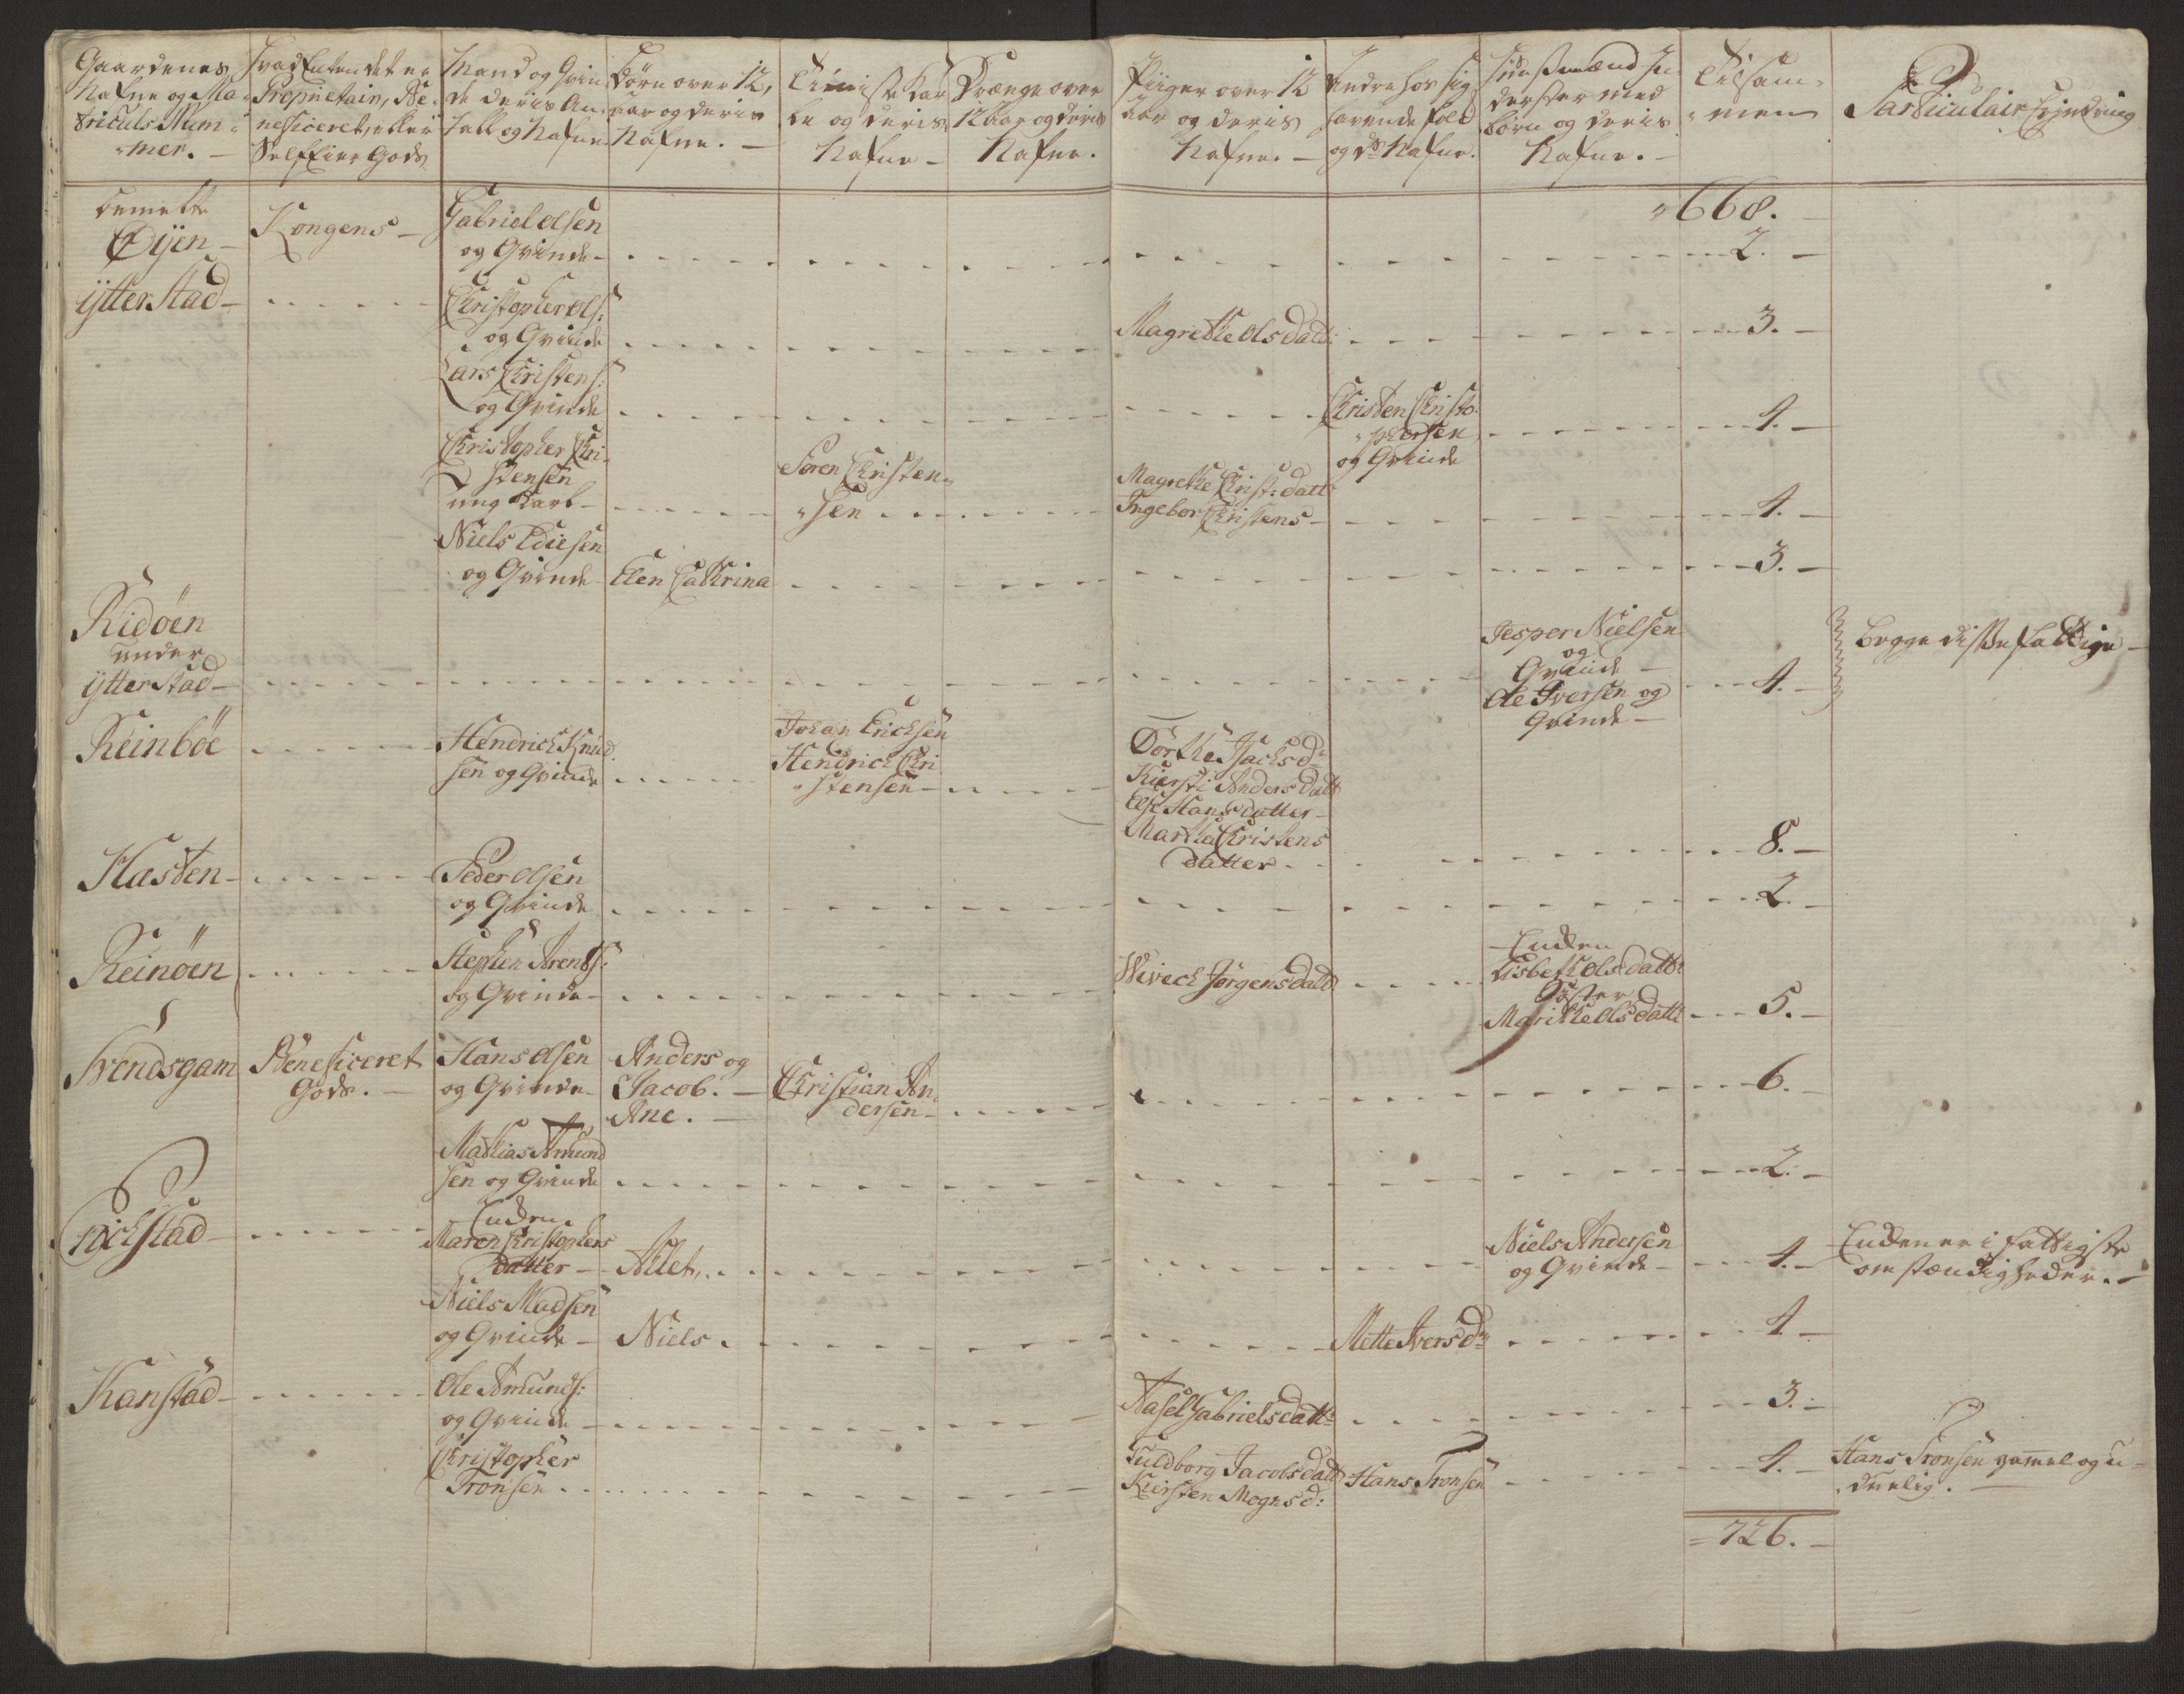 Gaardenes
Nafne og Ma-
triculs Num-
mer. —
Hvad Enten det er
Proprietair, Be-
neficeret, eller
Selfeier Gods
Mand og Qvin
de deris An-
tall og Nafne
Børn over 12,
aar og deris
Nafne. —
Tieniste Kar
le og deris
Nafne —
Drænge over
12 aar og deris
Nafne.
Piiger over 12
aar og deris
Nafne. —
Andre hos sig
havende folk
og ds Nafne.
Huusmænd In
derster med
børn og deris
Nafne. —
Tilsam-
men
Particulair
"668. —
bemelte
Øÿen —
Kongens —
Gabriel Olsen
og Qvinde — 2. —
ÿtterstad —
Christopher Ols:
og Qvinde
Magrethe Olsdatt: 3. —
Lars Christens:
og Qvinde
Christen Christo-
phersen
og Qvinde
4. —
Christopher Chri-
stensen
ung Karl —
Søren Christen-
sen
Magrethe Christ: datt:
Ingebor Christens —
4. —
Niels Ediesen
og Qvinde
Elen Cathrina
3. —
Ridøen
under
ÿtterstad —
Jesper Nielsen
og
Qvinde —
Ole Iversen og
Qvinde —
4. —
begge disse fattige —
Reinbøe
Hendrich Knud
sen og Qvinde
Johan Erichsen
Hendrich Chri
stensen —
Dorthe Isachsdr
Kiersti Andersdatt
Else Hansdatter —
Martha Christens
datter
8. —
Hasten —
Peder Olsen
og Qvinde
2. —
Reinøen
Stephen Arents:
og Qvinde —
Wivech Jørgensdatt
Enken
Lisbeth Olsdattr
Søster
Marithe Olsdattr
5. —
Svendsgam
Beneficeret
Gods. —
Hans Olsen
og Qvinde —
Anders og
Jacob. —
Ane. —
Christian An-
dersen —
6. —
Mathias Amund
sen og Qvinde
2. —
Enken
Maren Christophers
datter —
Allet,
Niels Andersen
og Qvinde —
4. —
Enken er i fattigste
omstændigheder. —
Niels Madsen
og Qvinde —
Niels
Mette Iversdr
4 —
Kanstad —
Ole Amunds:
og Qvinde —
Aasel Gabrielsdattr
3. —
Christopher
Tronsen
Guldborg Jacobsdatt
Kiersten Mognsd:
Hans Tronsen
4. —
Hans Tronsen gamel og u-
duelig. —
= 726. —